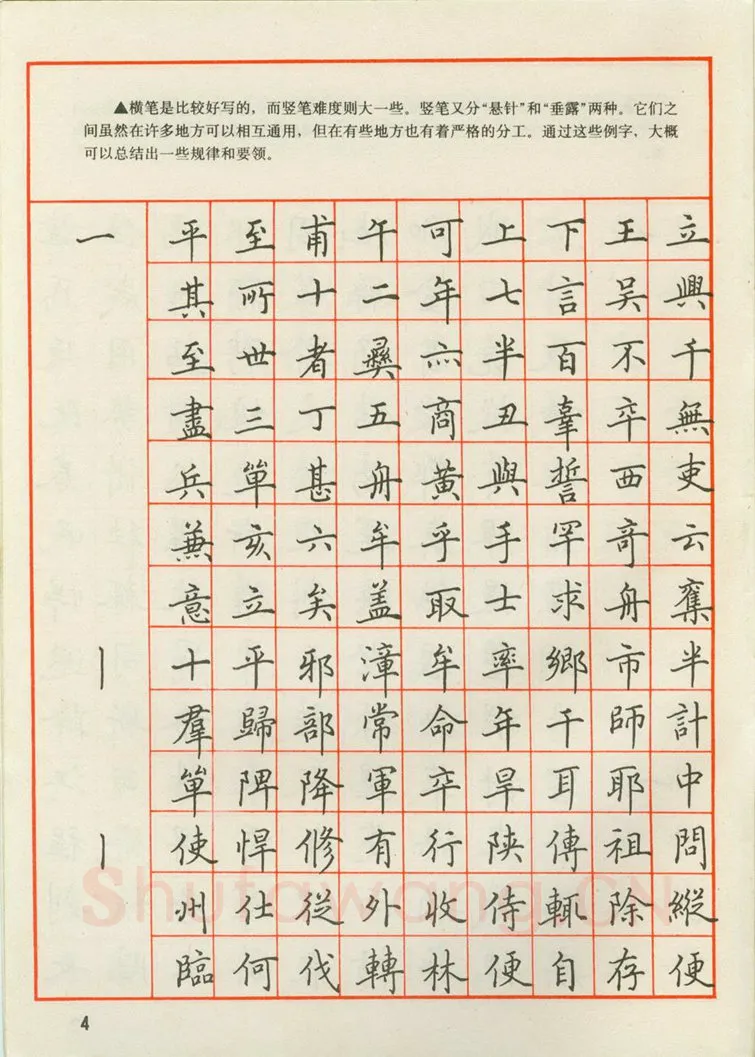 ▲横笔是比较好写的，而竖笔难度则大一些。竖笔又分“悬针”和“垂露”两种。它们之
间虽然在许多地方可以相互通用，但在有些地方也有着严格的分工。通过这些例字，大概
可以总结出一些规律和要领。
一 平 至 甫 午 可 上 下 王 立
其 所 十 二 年 七 言 吴 興
至 世 者 彝 六 半 百 不 千
盡 三 丁 五 商 丑 辜 卒 無
兵 單 甚 舟 黄 與 誓 西 吏
兼 亥 六 牟 乎 手 罕 奇 云
意 立 矣 盖 取 士 求 舟 奪
丨 十 平 邪 漳 牟 率 鄉 市 半
羣 歸 部 常 命 年 干 師 計
單 陴 降 軍 卒 旱 耳 耶 中
丨 使 悍 修 有 行 陕 傳 祖 問
州 仕 從 外 收 侍 輒 除 縱
臨 何 伐 轉 林 便 自 存 便
Shufawang.CN
4